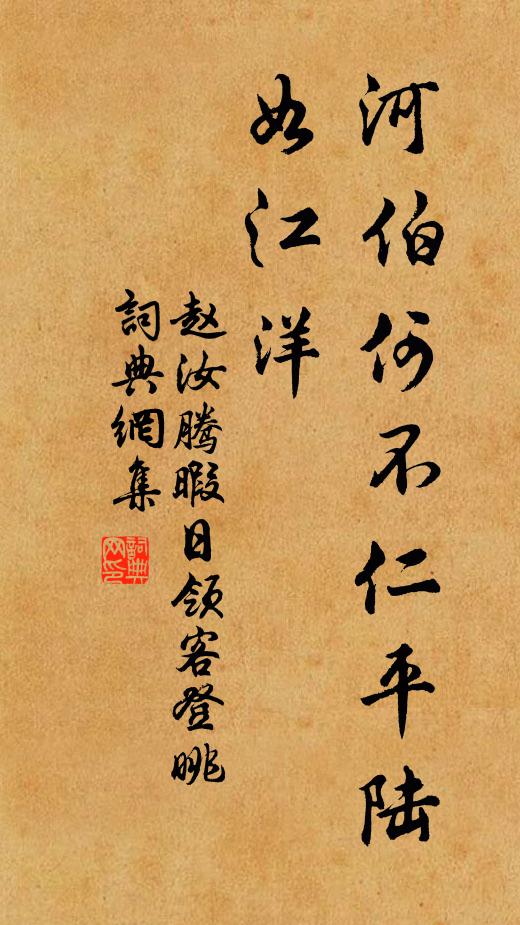 河伯何不仁平陆
如江洋
赵汝腾暇日领客登眺
詞典網集
詞典网印